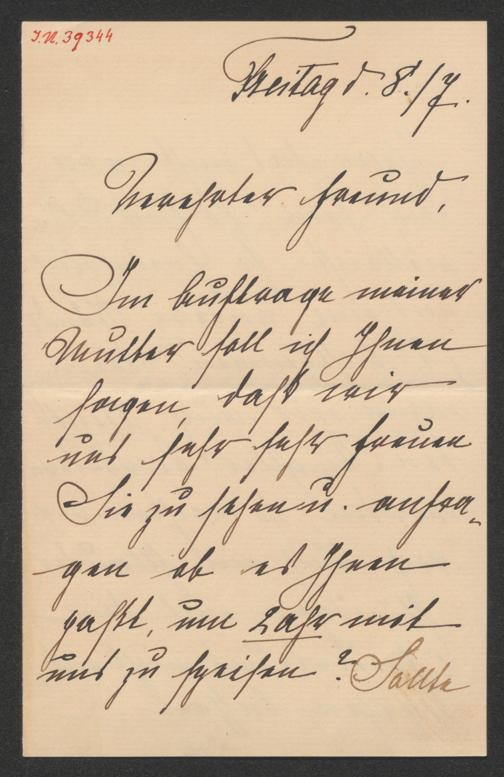 I.N. 39344
Freitag d. 8./7.
Verehrter Freund,
Im Auftrage meiner
Mutter soll ich Ihnen
sagen, daß wir
uns sehr sehr freuen
Sie zu sehen u. anfra-
gen ob es Ihnen
paßt, um 2 Uhr mit
uns zu speisen? Sollte